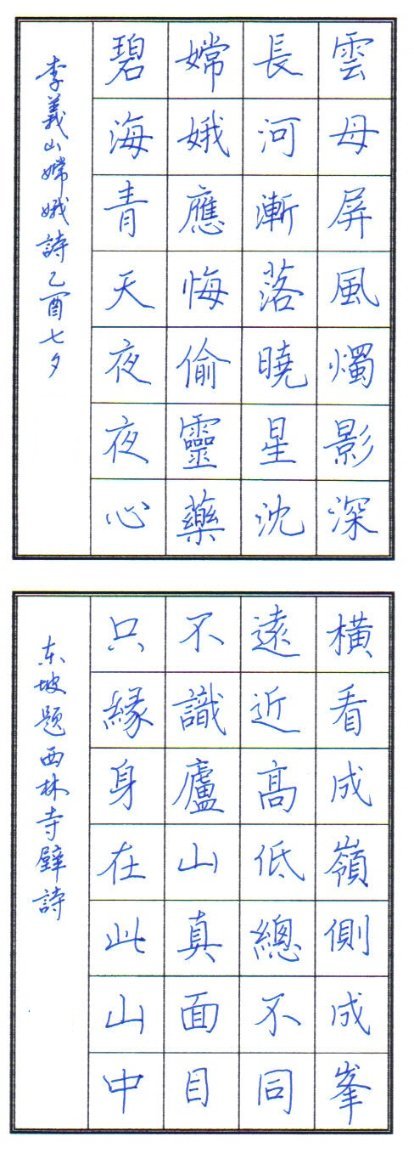 雲母屏風燭影深
長河漸落曉星沈
嫦娥應悔偷靈藥
碧海青天夜夜心
李義山嫦娥詩乙酉七夕
橫看成嶺側成峯
遠近高低總不同
不識廬山真面目
只緣身在此山中
东坡题西林寺壁詩